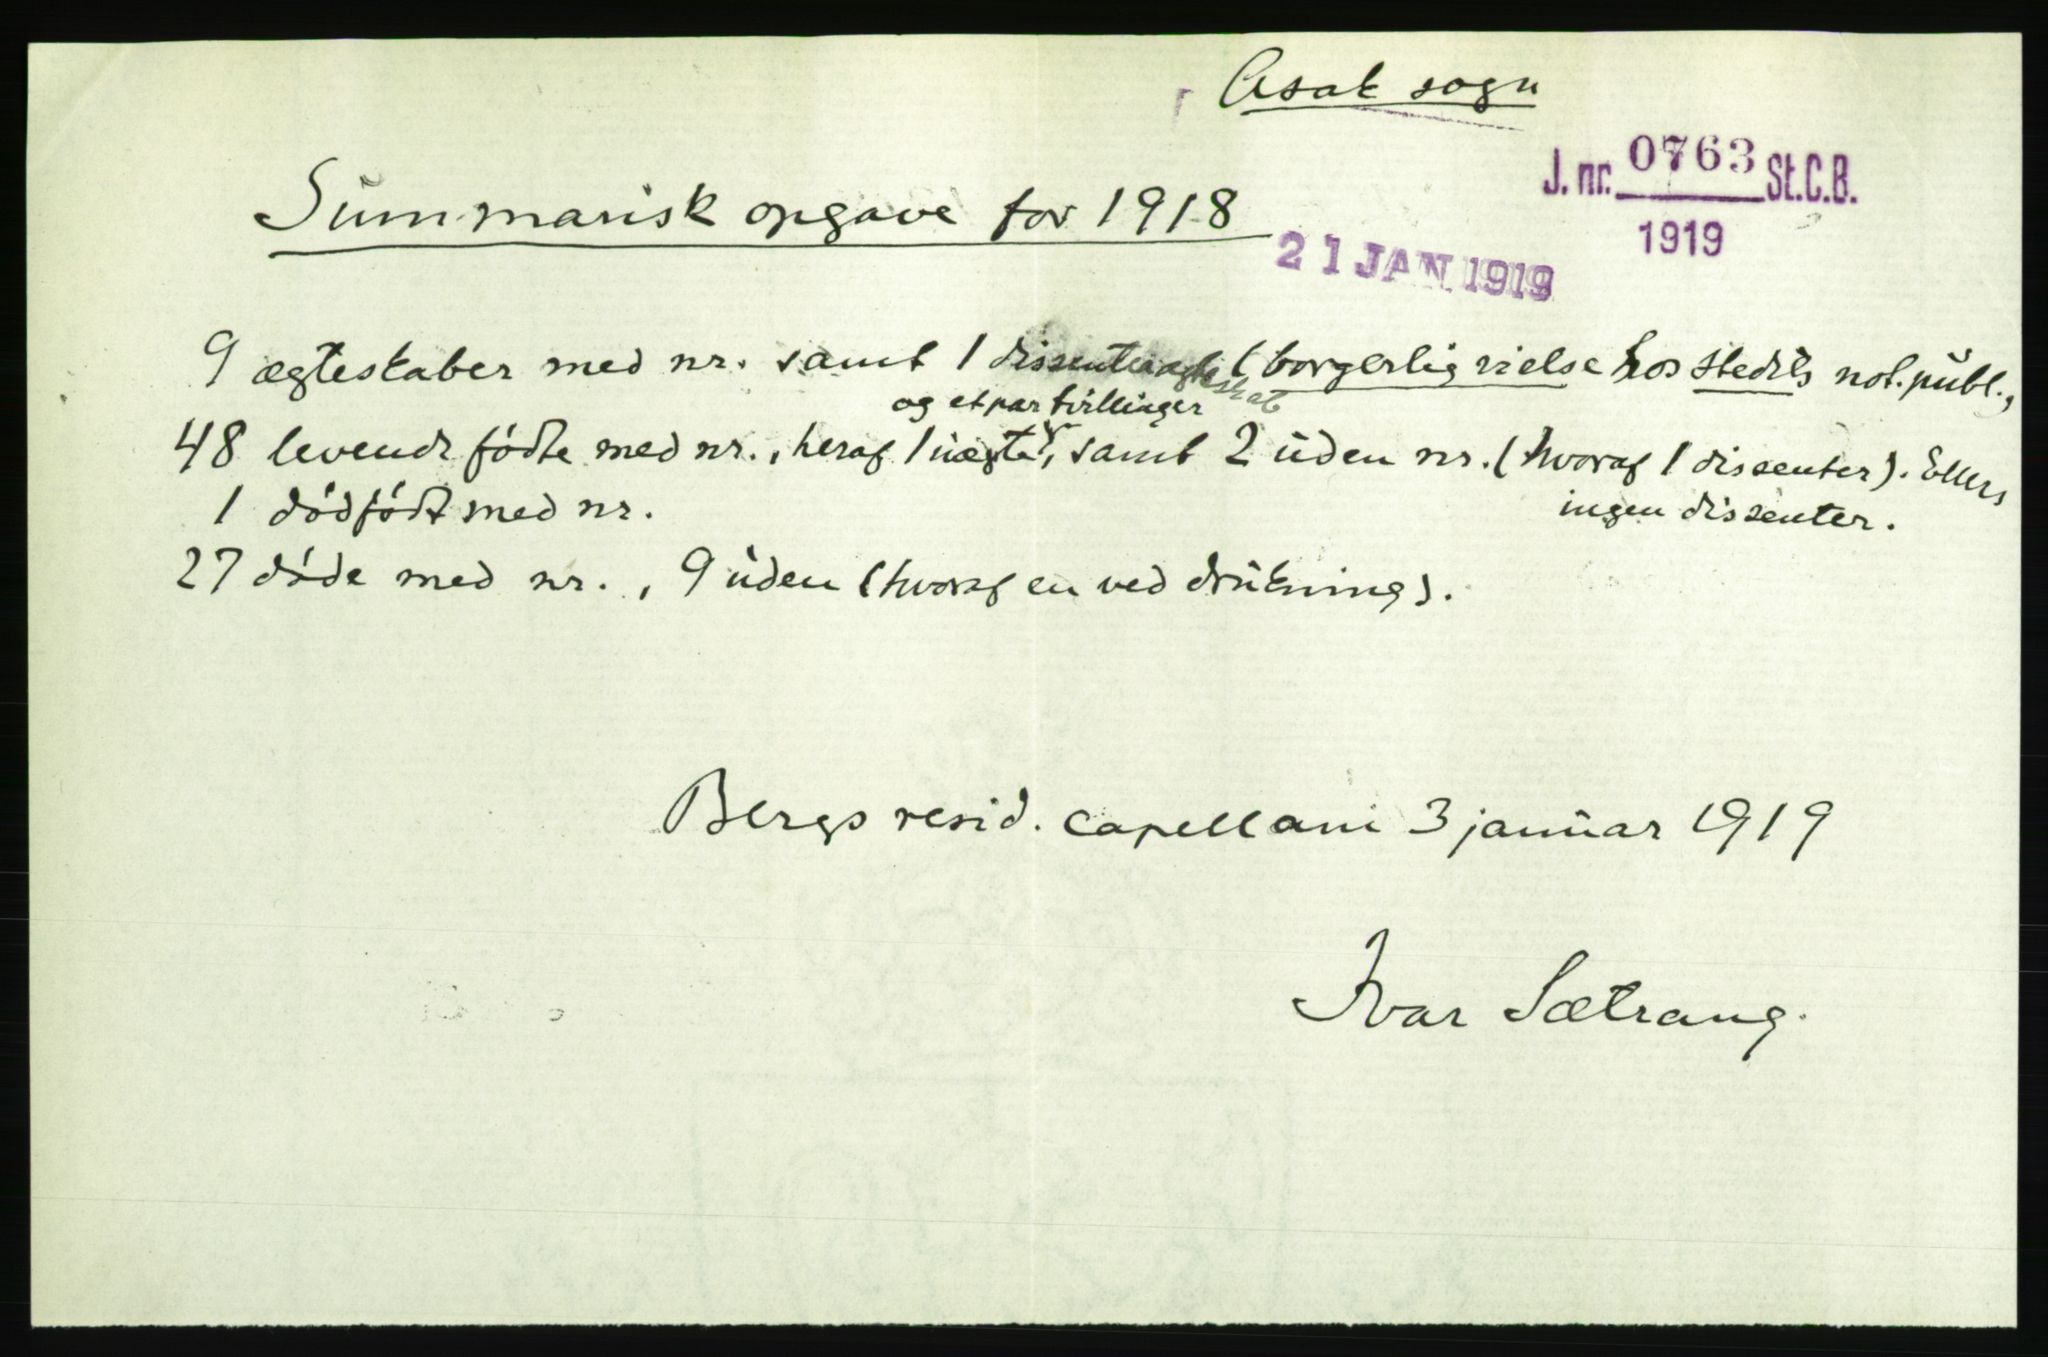 Asak sogn
J. nr. 0763 St.C.B.
1919
Summarisk opgave for 1918
21 JAN 1919
9 ægteskaber med nr. samt 1 dissenterægteskab (borgerlig vielse hos stedets not. publ.,
og et par tvillinger
48 levende fødte med nr., heraf 1 uægte, samt 2 uden nr. (hvoraf 1 dissenter). Ellers
ingen dissenter.
1 dødfødt med nr.
27 døde med nr., 9 uden (hvoraf en ved drukning).
Bergs resid. capellani 3 januar 1919
Ivar Sætrang.